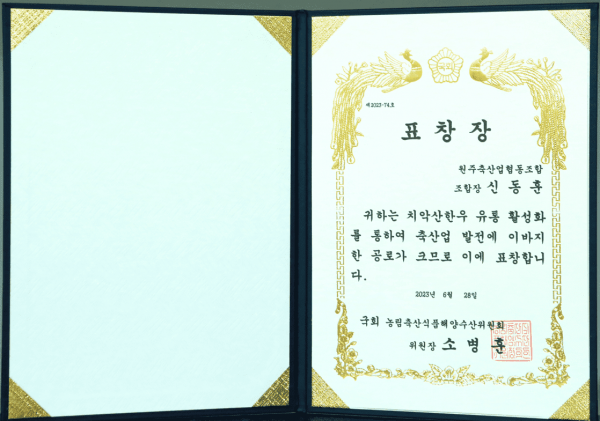 제2023-74호
표창장
원주축산업협동조합
조합장 신동훈
귀하는 치악산한우 유통 활성화
를 통하여 축산업 발전에 이바지
한 공로가 크므로 이에 표창합니
다.
2023년 6월 28일
국회 농림축산식품해양수산위원회
위원장 소병훈